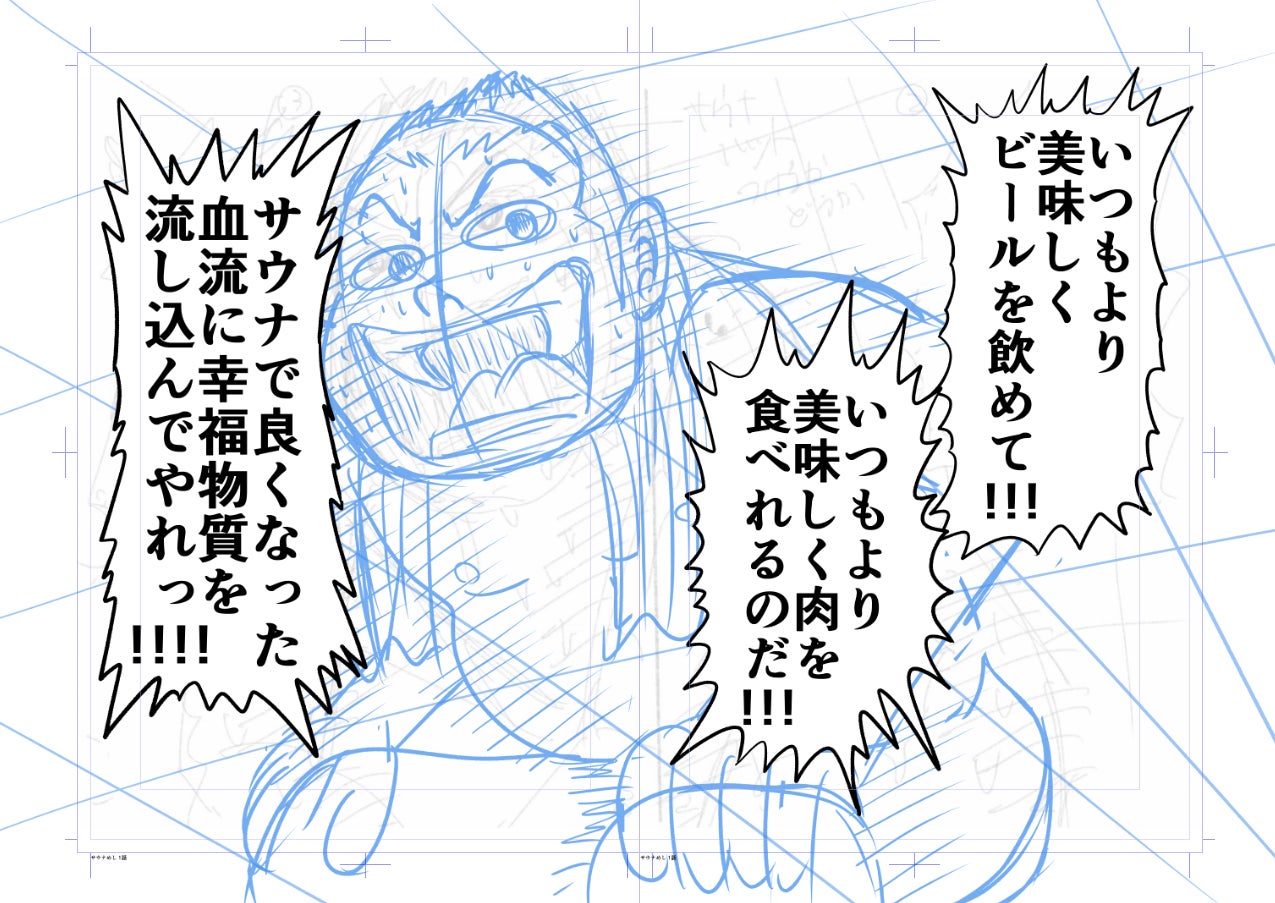 いつもより
美味しく
ビールを飲めて!!!
いつもより
美味しく肉を
食べれるのだ!!!
サウナで良くなった
血流に幸福物質を
流し込んでやれっ!!!!
サウナめし 1話
サウナめし 1話